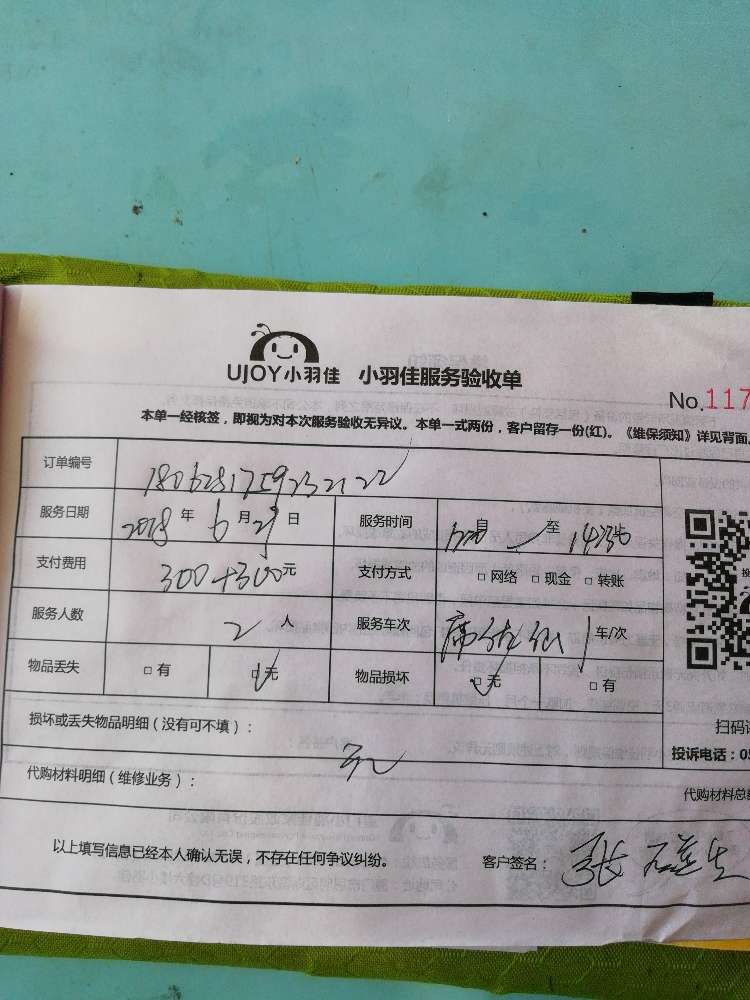 UJOY小羽佳 小羽佳服务验收单
No.117
本单一经核签，即视为对本次服务验收无异议。本单一式两份，客户留存一份(红)。《维保须知》详见背面。
订单编号
服务日期 2018 年 6 月 29 日 服务时间 自 至
支付费用 300+300元 支付方式 □ 网络 □ 现金 □ 转账
服务人数 2 人 服务车次 1 车/次
物品丢失 □ 有 □ 无 物品损坏 □ 无 □ 有
损坏或丢失物品明细（没有可不填）：
扫码
投诉电话：05
无
代购材料明细（维修业务）：
代购材料总
以上填写信息已经本人确认无误，不存在任何争议纠纷。 客户签名： 张